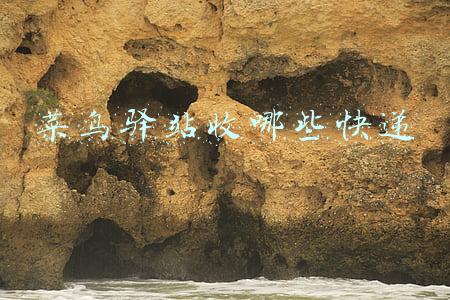 菜鸟驿站收哪些快递